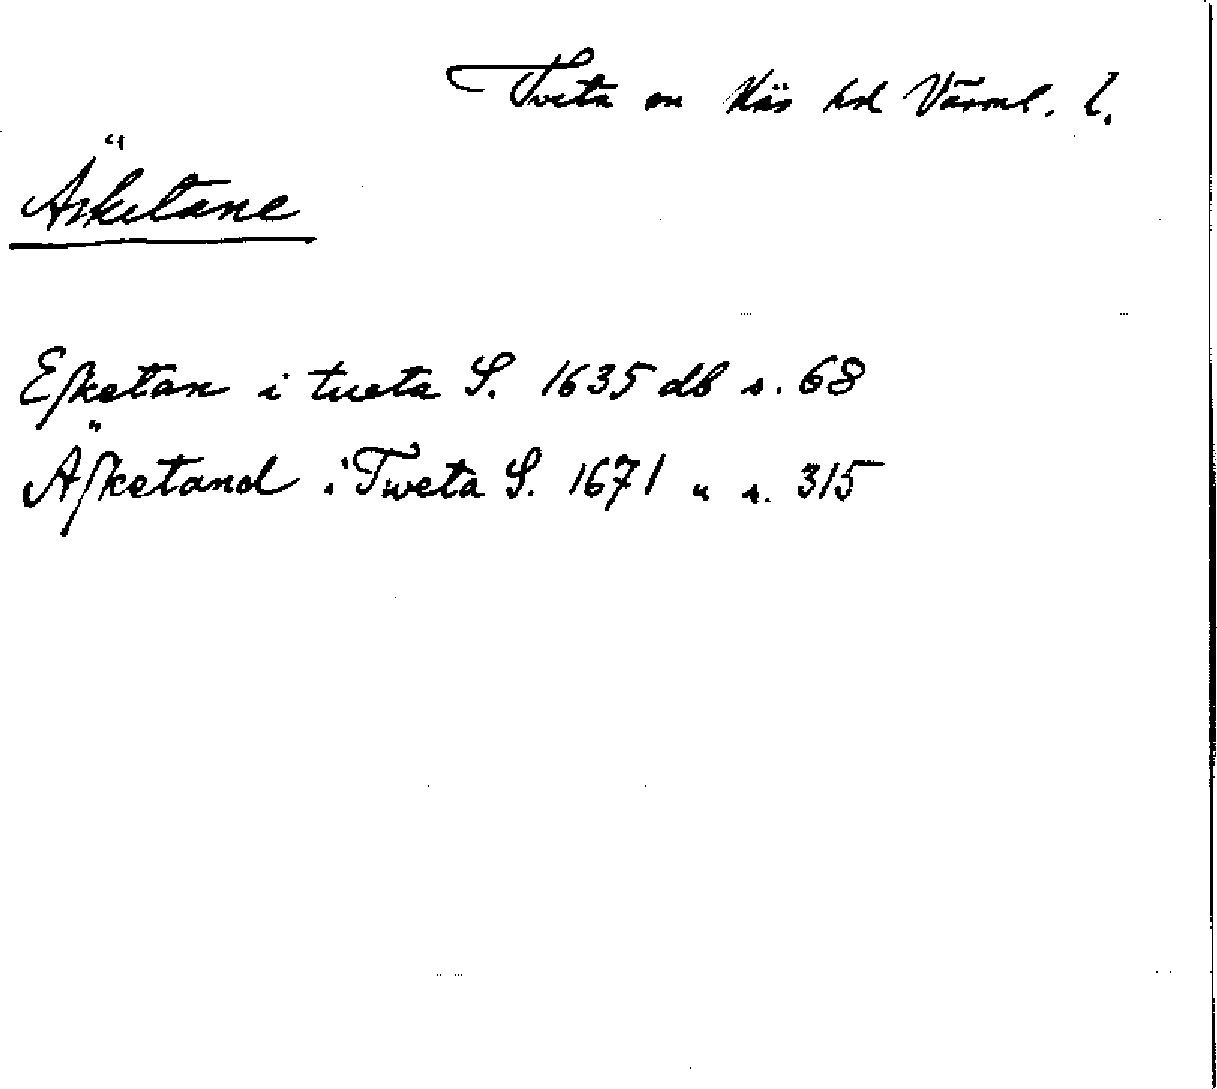 Tveta sn Näs hd Värml. l.
Äsketane
Eſketan i tueta S. 1635 db s. 68
Äſketand i Tweta S. 1671 " s. 315